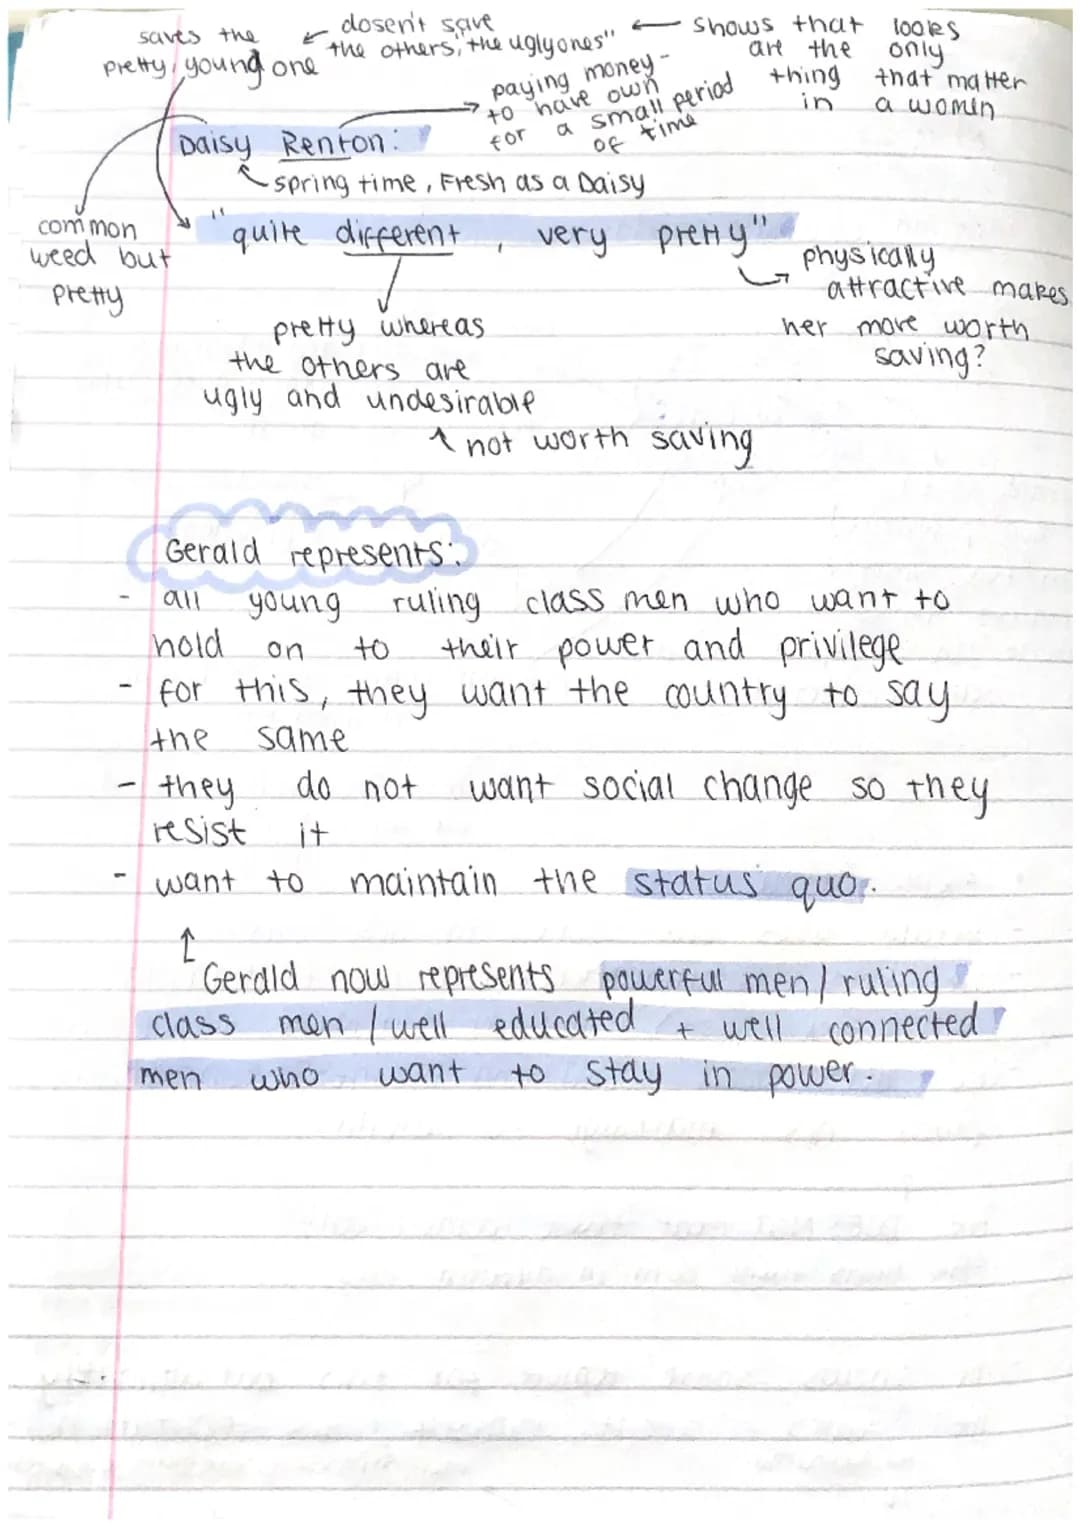 saves the
pretty, young one
dosen't save
the others, the ugly ones"
shows that looks
are the only
thing that matter
in a women
paying money -
to have own
for a small period
of time
Daisy Renton:
spring time, Fresh as a Daisy
common
weed but
pretty
"quite different, very pretty"
physically
attractive makes
her more worth
saving?
pretty whereas
the others are
ugly and undesirable
not worth saving
Gerald represents:
- all young ruling class men who want to
hold on to their power and privilege
- for this, they want the country to say
the same
- they do not want social change so they
resist it
- want to maintain the status quo.
Gerald now represents powerful men / ruling
class men / well educated + well connected
men who want to stay in power.